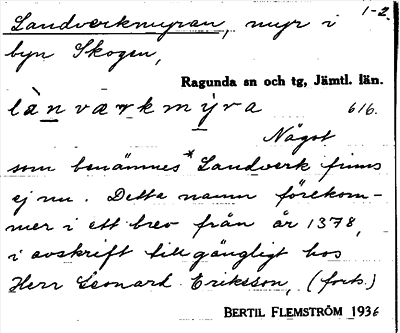 1-2.
Landverksmyran, myr i
byn Skogen,
Ragunda sn och tg, Jämtl. län.
là̀nværkmýra 616.
Något
som benämnes *Landverk finns
ej nu. Detta namn förekom-
mer i ett brev från år 1378,
i avskrift tillgängligt hos
Herr Leonard Eriksson, (forts.)
BERTIL FLEMSTRÖM 1936